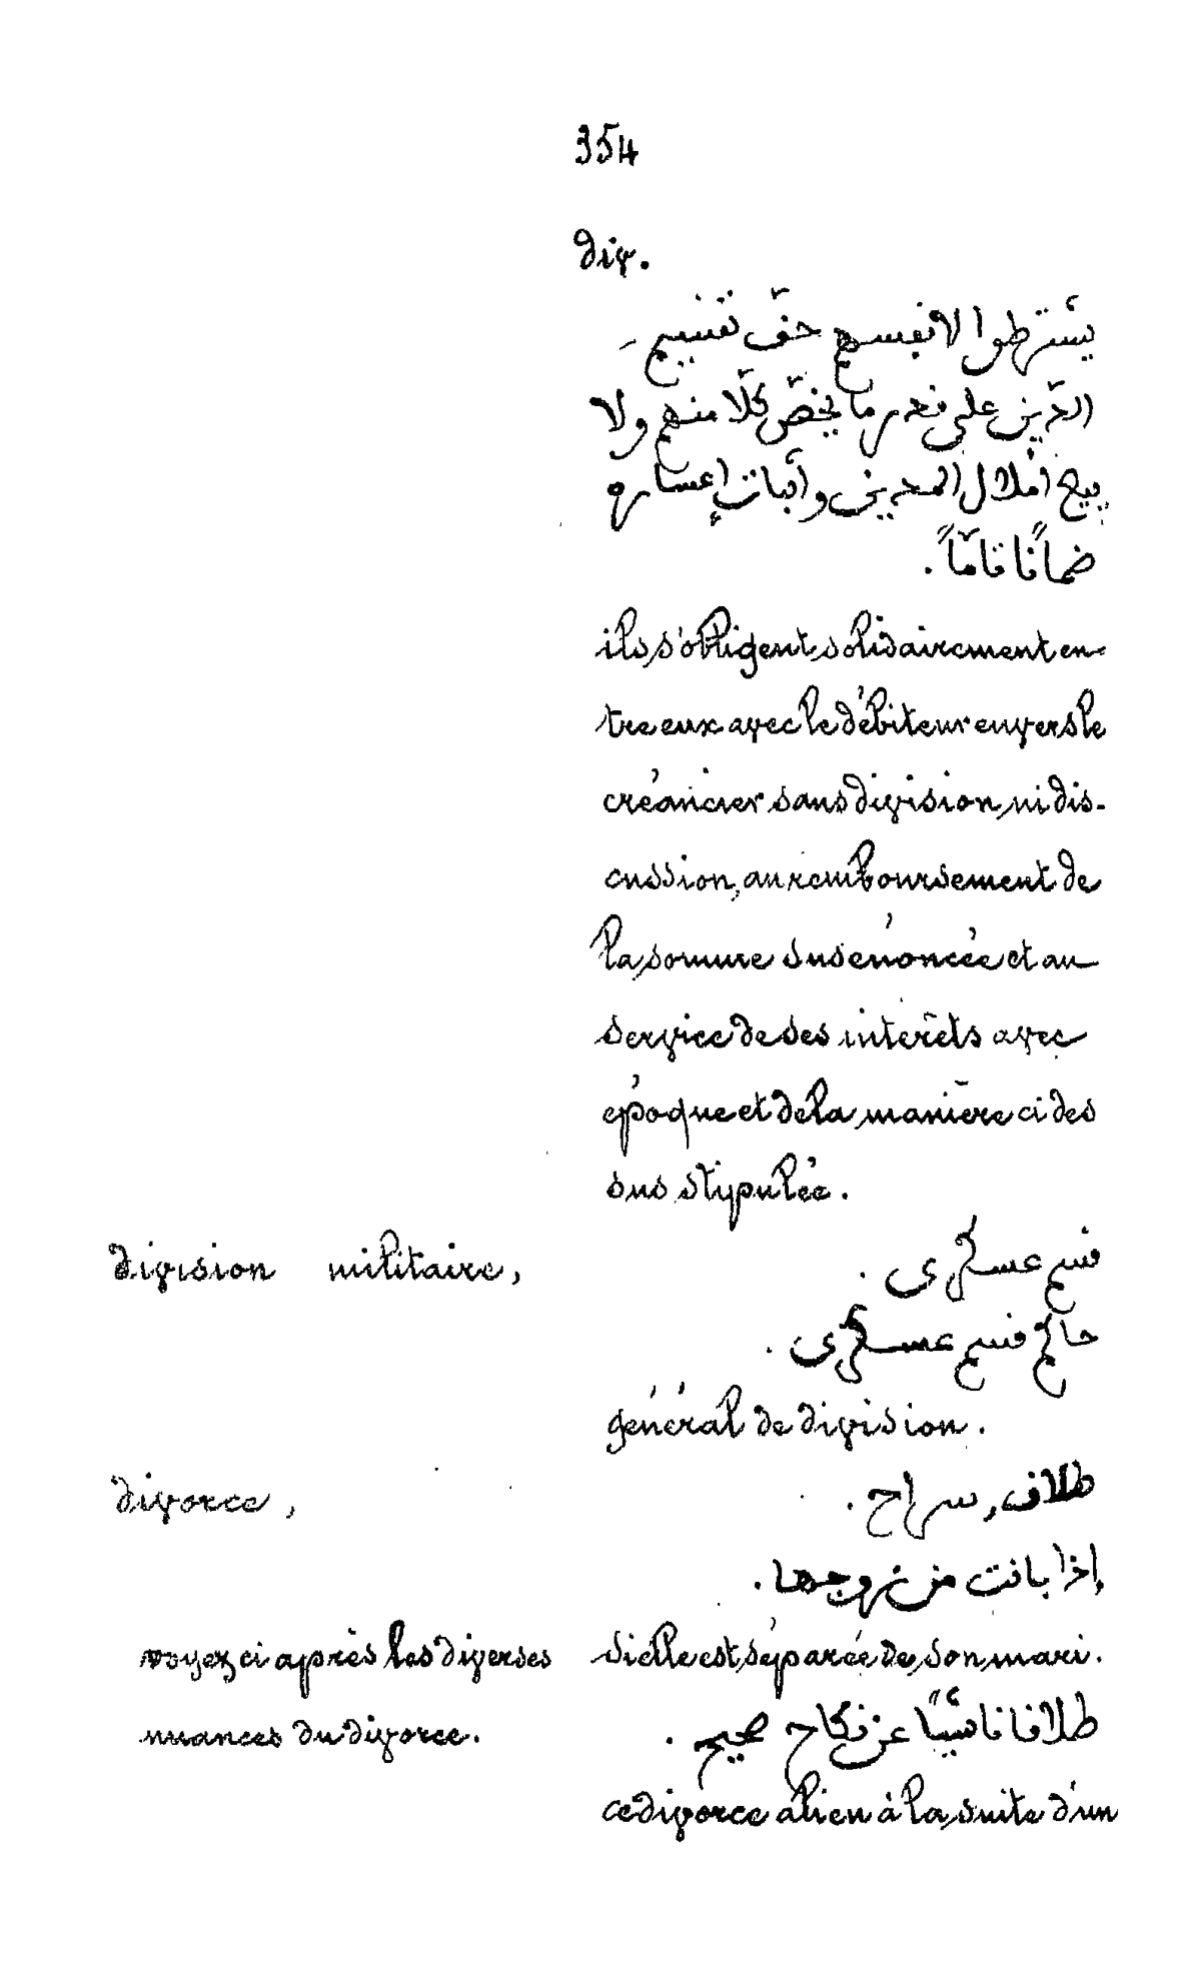 354
div.
يشترطوا لانفسهم حقّ تقسيم
الدّين على قدر ما يخصّ كلّا منهم ولا
بيع املاك المديني وأثبات إعساره
ضمانًا تامّاً .
ils s'obligent solidairement en-
tre eux avec le débiteur envers le
créancier sans division, ni dis-
cussion, au remboursement de
la somme susénoncée et au
service de ses intérêts avec
époque et de la manière ci des
sus stipulée.
division militaire, قسم عسكرى .
حاكم قسم عسكرى .
général de division.
divorce, طلاق, سراح .
إذا بانت من زوجها .
voyez ci après les diverses si elle est séparée de son mari.
nuances du divorce. طلاقا ناشئًا عن نكاح صحيح .
ce divorce a lieu à la suite d'un